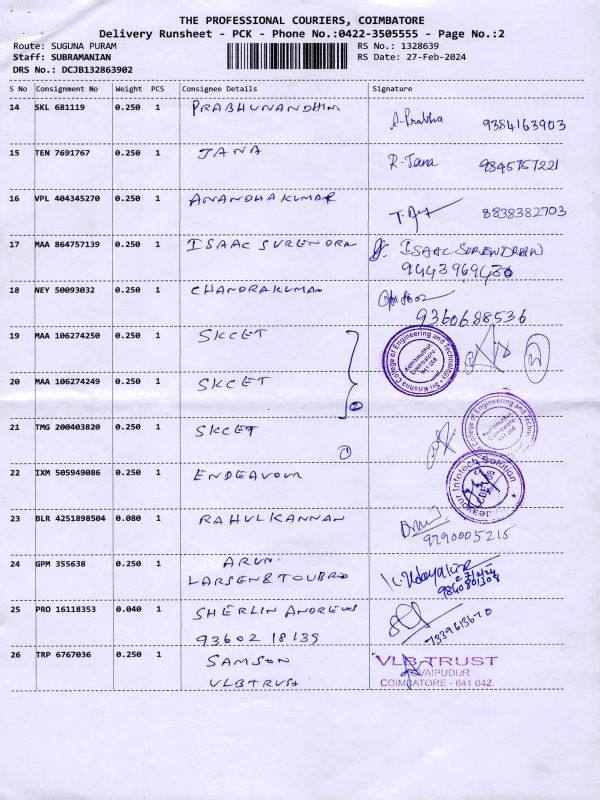 THE PROFESSIONAL COURIERS, COIMBATORE
Delivery Runsheet - PCK - Phone No.:0422-3505555 - Page No.:2
Route: SUGUNA PURAM RS No.: 1328639
Staff: SUBRAMANIAN RS Date: 27-Feb-2024
DRS No.: DCJB132863902
S No Consignment No Weight PCS Consignee Details Signature
14 SKL 681119 0.250 1 PRABHUNANDHINI A. Prabha 9384163903
15 TEN 7691767 0.250 1 JANA R. Jana 9845757221
16 VPL 404345270 0.250 1 ANANDHAKUMAR 8838382703
17 MAA 864757139 0.250 1 ISAAC SURENDRAN ISAAC SURENDRAN
9443969430
18 NEY 50093032 0.250 1 CHANDRAKUMAR
9360688536
19 MAA 106274250 0.250 1 SKCET Sri Krishna College of Engineering and Technology
Kuniamuthur
Coimbatore
641 008
20 MAA 106274249 0.250 1 SKCET
2
21 TMG 200403820 0.250 1 SKCET College of Engineering and
Kuniamuthur
Coimbatore
641 008
1
22 IXM 505949086 0.250 1 ENDEAVOUR Endeavour Infotech Solution
23 BLR 4251898504 0.080 1 RAHULKANNAN
9790005215
24 GPM 355638 0.250 1 ARUN K. Udayakumar
LARSEN & TOUBRO 27/2/24
9840801308
25 PRO 16118353 0.040 1 SHERLIN ANDREWS
93602 18139 7839613670
26 TRP 6767036 0.250 1 SAMSON VLB TRUST
VLB TRUST KOVAIPUDUR
COIMBATORE - 641 042.